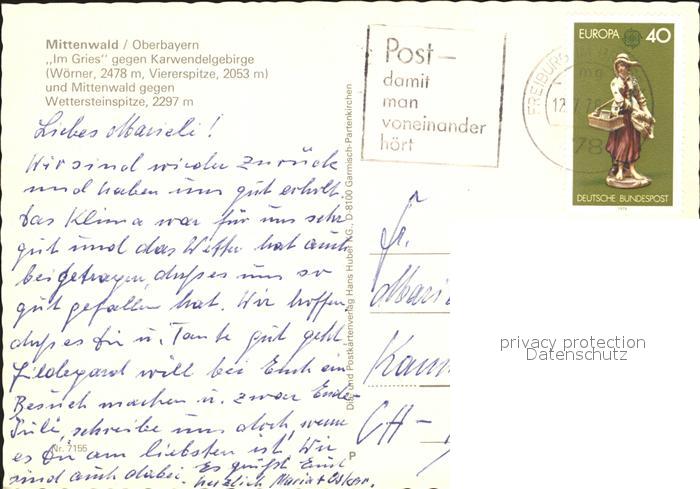 Mittenwald / Oberbayern
„Im Gries" gegen Karwendelgebirge
(Wörner, 2478 m, Viererspitze, 2053 m)
und Mittenwald gegen
Wettersteinspitze, 2297 m
Liebes Marieli!
Wir sind wieder zurück
und haben uns gut erholt.
Das Klima war für uns sehr
gut und das Wetter hat auch
beigetragen, daß es uns so
gut gefallen hat. Wir hoffen,
daß es Dir u. Tante gut geht
Hildegard will bei Euch ein
Besuch machen u. zwar Ende
Juli, schreibe uns doch, wenn
es Dir am liebsten ist. Wir
sind auch dabei. Es grüßt Euch
herzlich Maria + Oskar.
Nr. 7155
Dia- und Postkartenverlag Hans Huber KG., D-8100 Garmisch-Partenkirchen
P
Post –
damit
man
voneinander
hört
FREIBURG
EUROPA 40
DEUTSCHE BUNDESPOST
1976
Fr.
CH –
privacy protection
Datenschutz